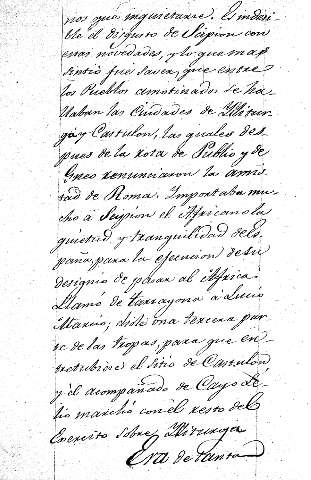 nos que inquietarse. Es indeci-
ble el disgusto de Scipion con
estas novedades, y lo que mas
sintió fue saver, que entre
los Pueblos amotinados se ha-
llaban las Ciudades de Yliturgo,
y Castulon, las quales des-
pues de la rota de Publio y de
Gneo renunciaron la amis-
tad de Roma. Importaba mu-
cho à Scipion el Africano la
quietud, y tranquilidad de Es-
paña, para la ejecucion de su
designio de pasar al Africa.
Llamó de Tarragona a Lucio
Marcio; diole una tercera par-
te de las tropas, para que en-
tretubiese el sitio de Castulon,
y él acompañado de Cayo Le-
lio marchó con el resto del
Exercito sobre Yliturgo
Era de tanta